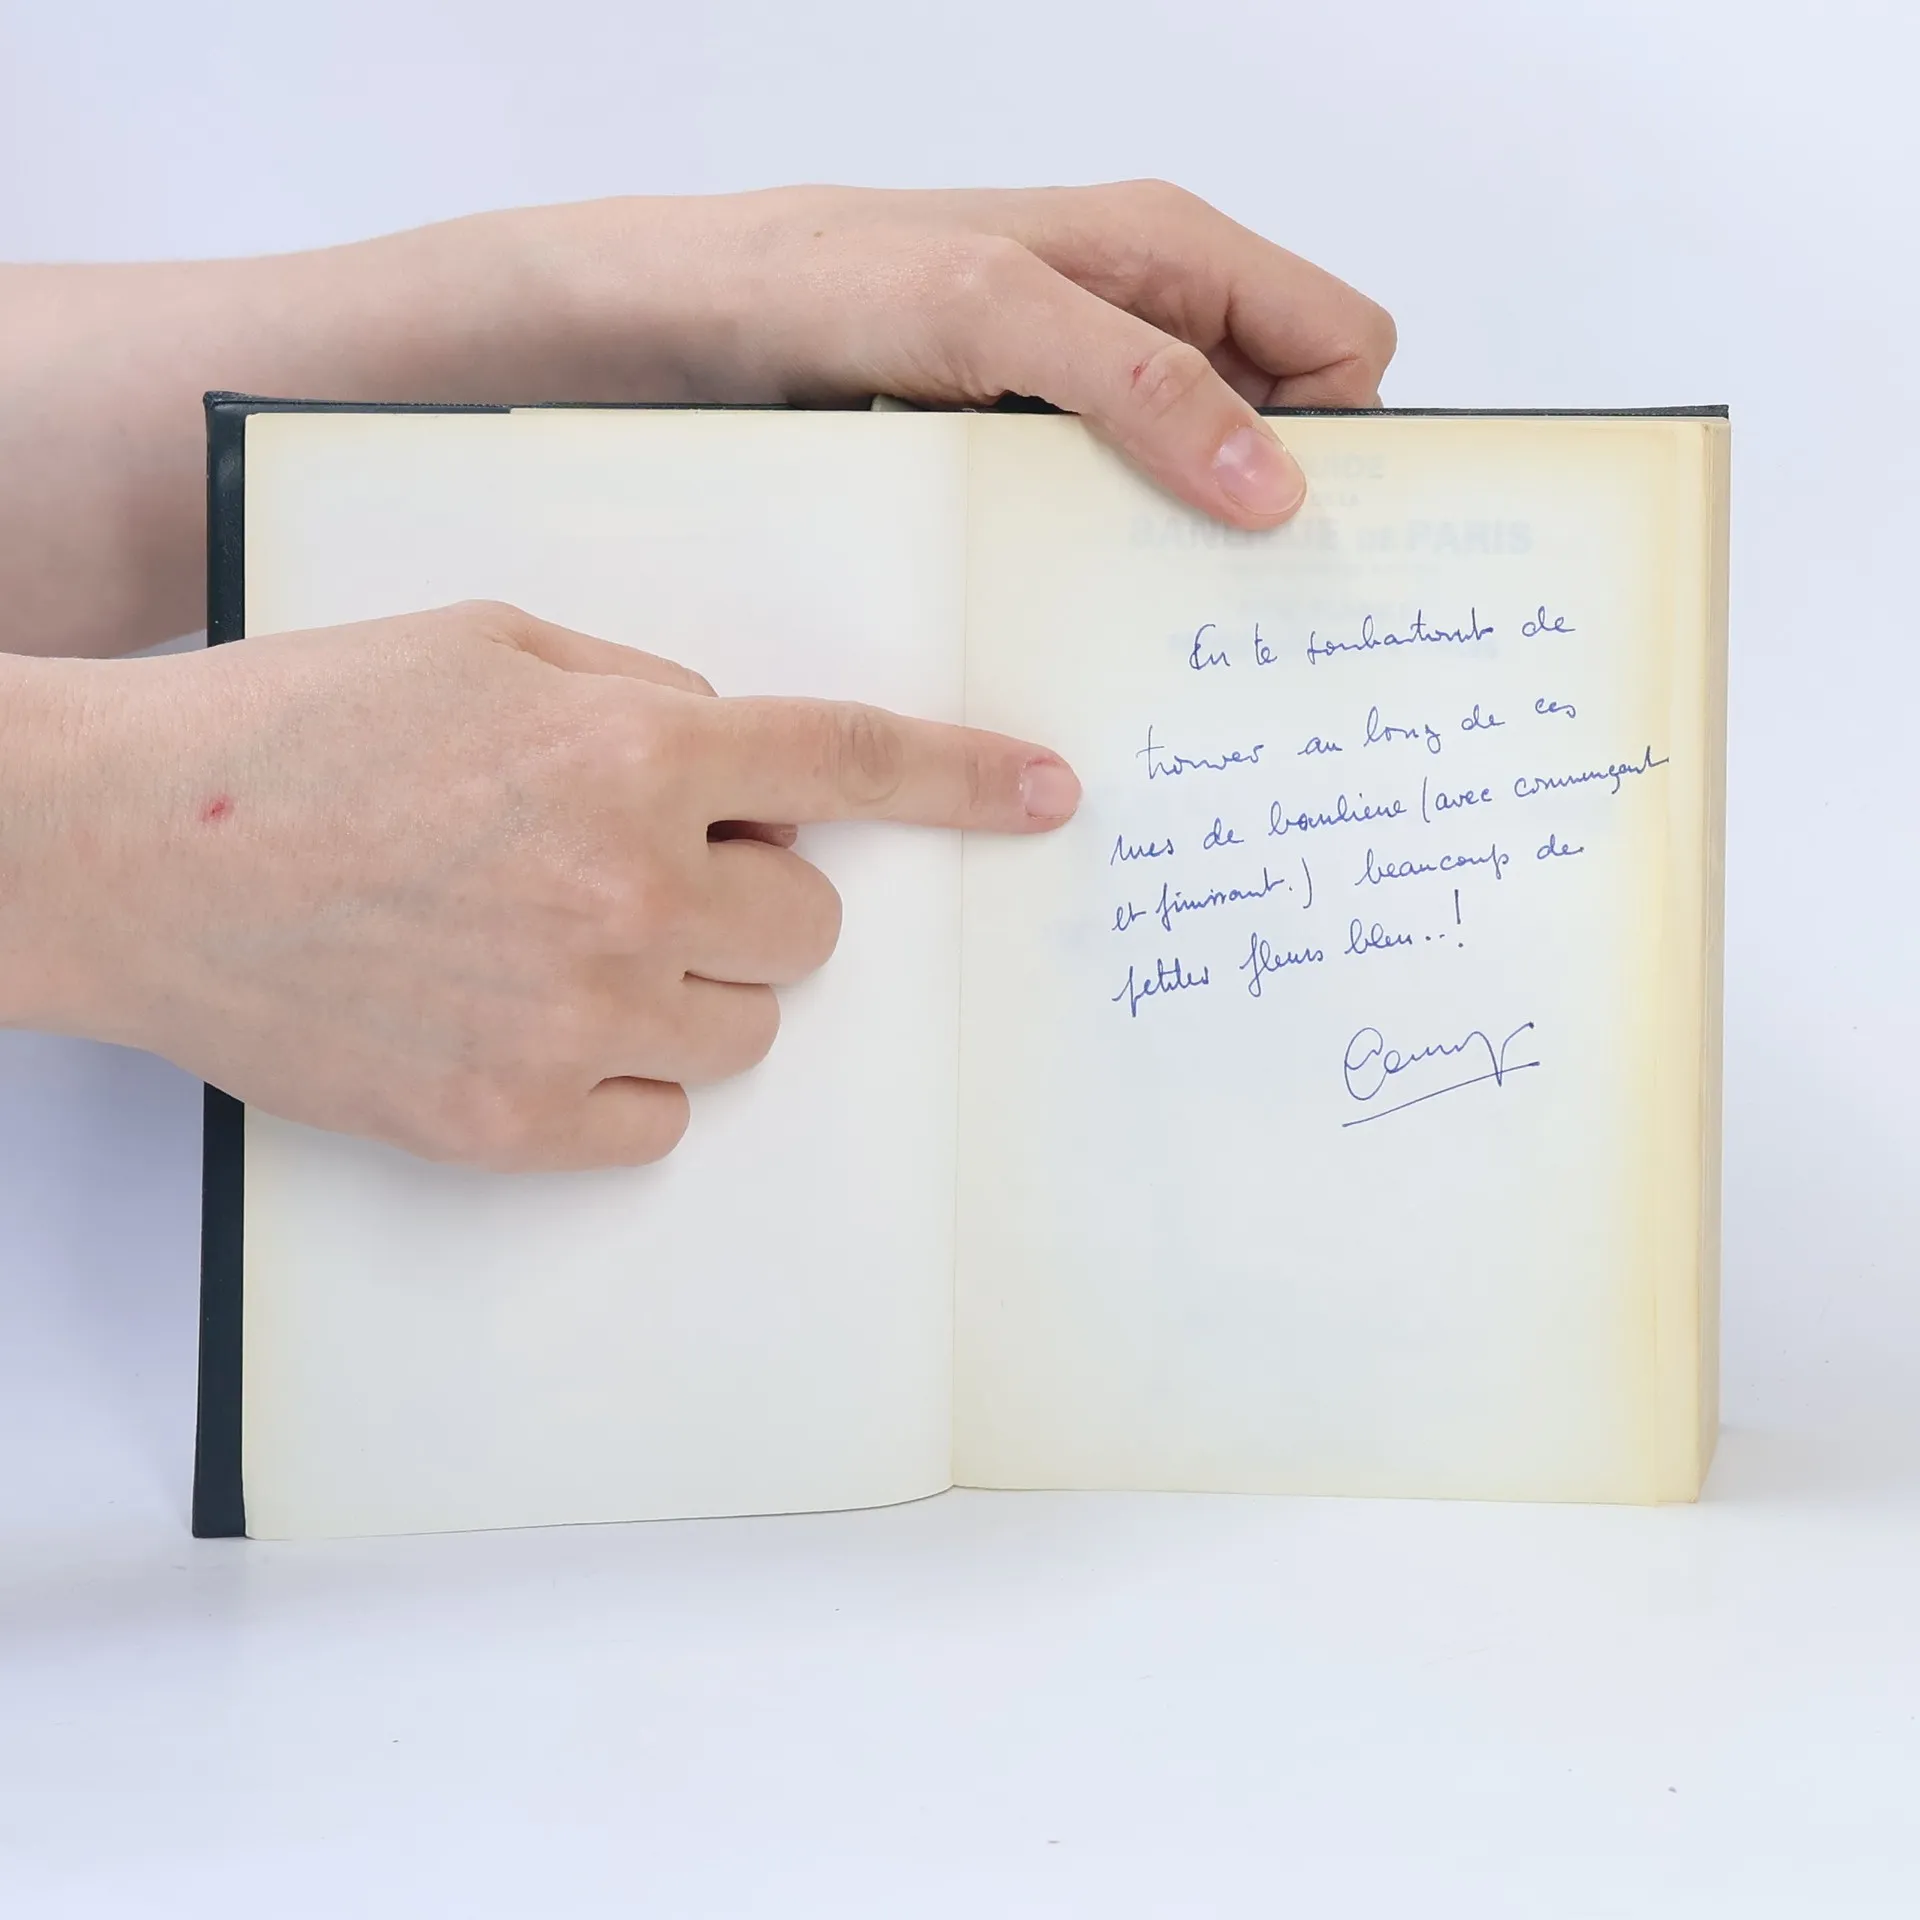 BANLIEUE DE PARIS
En te souhaitant de
trouver au long de ces
rues de banlieue (avec commençant
et finissant.) beaucoup de
petites fleurs bleu...!